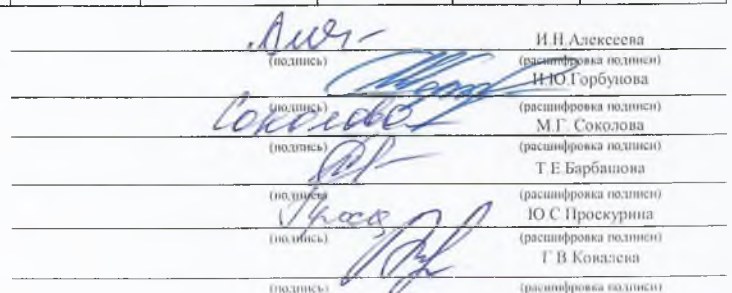 И.Н.Алексеева
(подпись) (расшифровка подписи)
И.Ю.Горбунова
(подпись) (расшифровка подписи)
Соколова М.Г. Соколова
(подпись) (расшифровка подписи)
Т.Е.Барбашова
(подпись) (расшифровка подписи)
Ю.С.Проскурина
(подпись) (расшифровка подписи)
Г.В.Ковалева
(подпись) (расшифровка подписи)